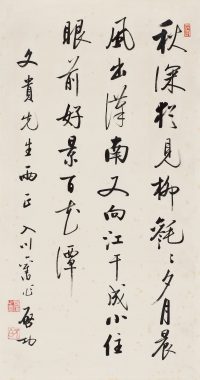 秋深犹见柳毵〻夕月晨
风出汉南又向江干成小住
眼前好景百花潭
文贵先生两正 入川之旧作 启功